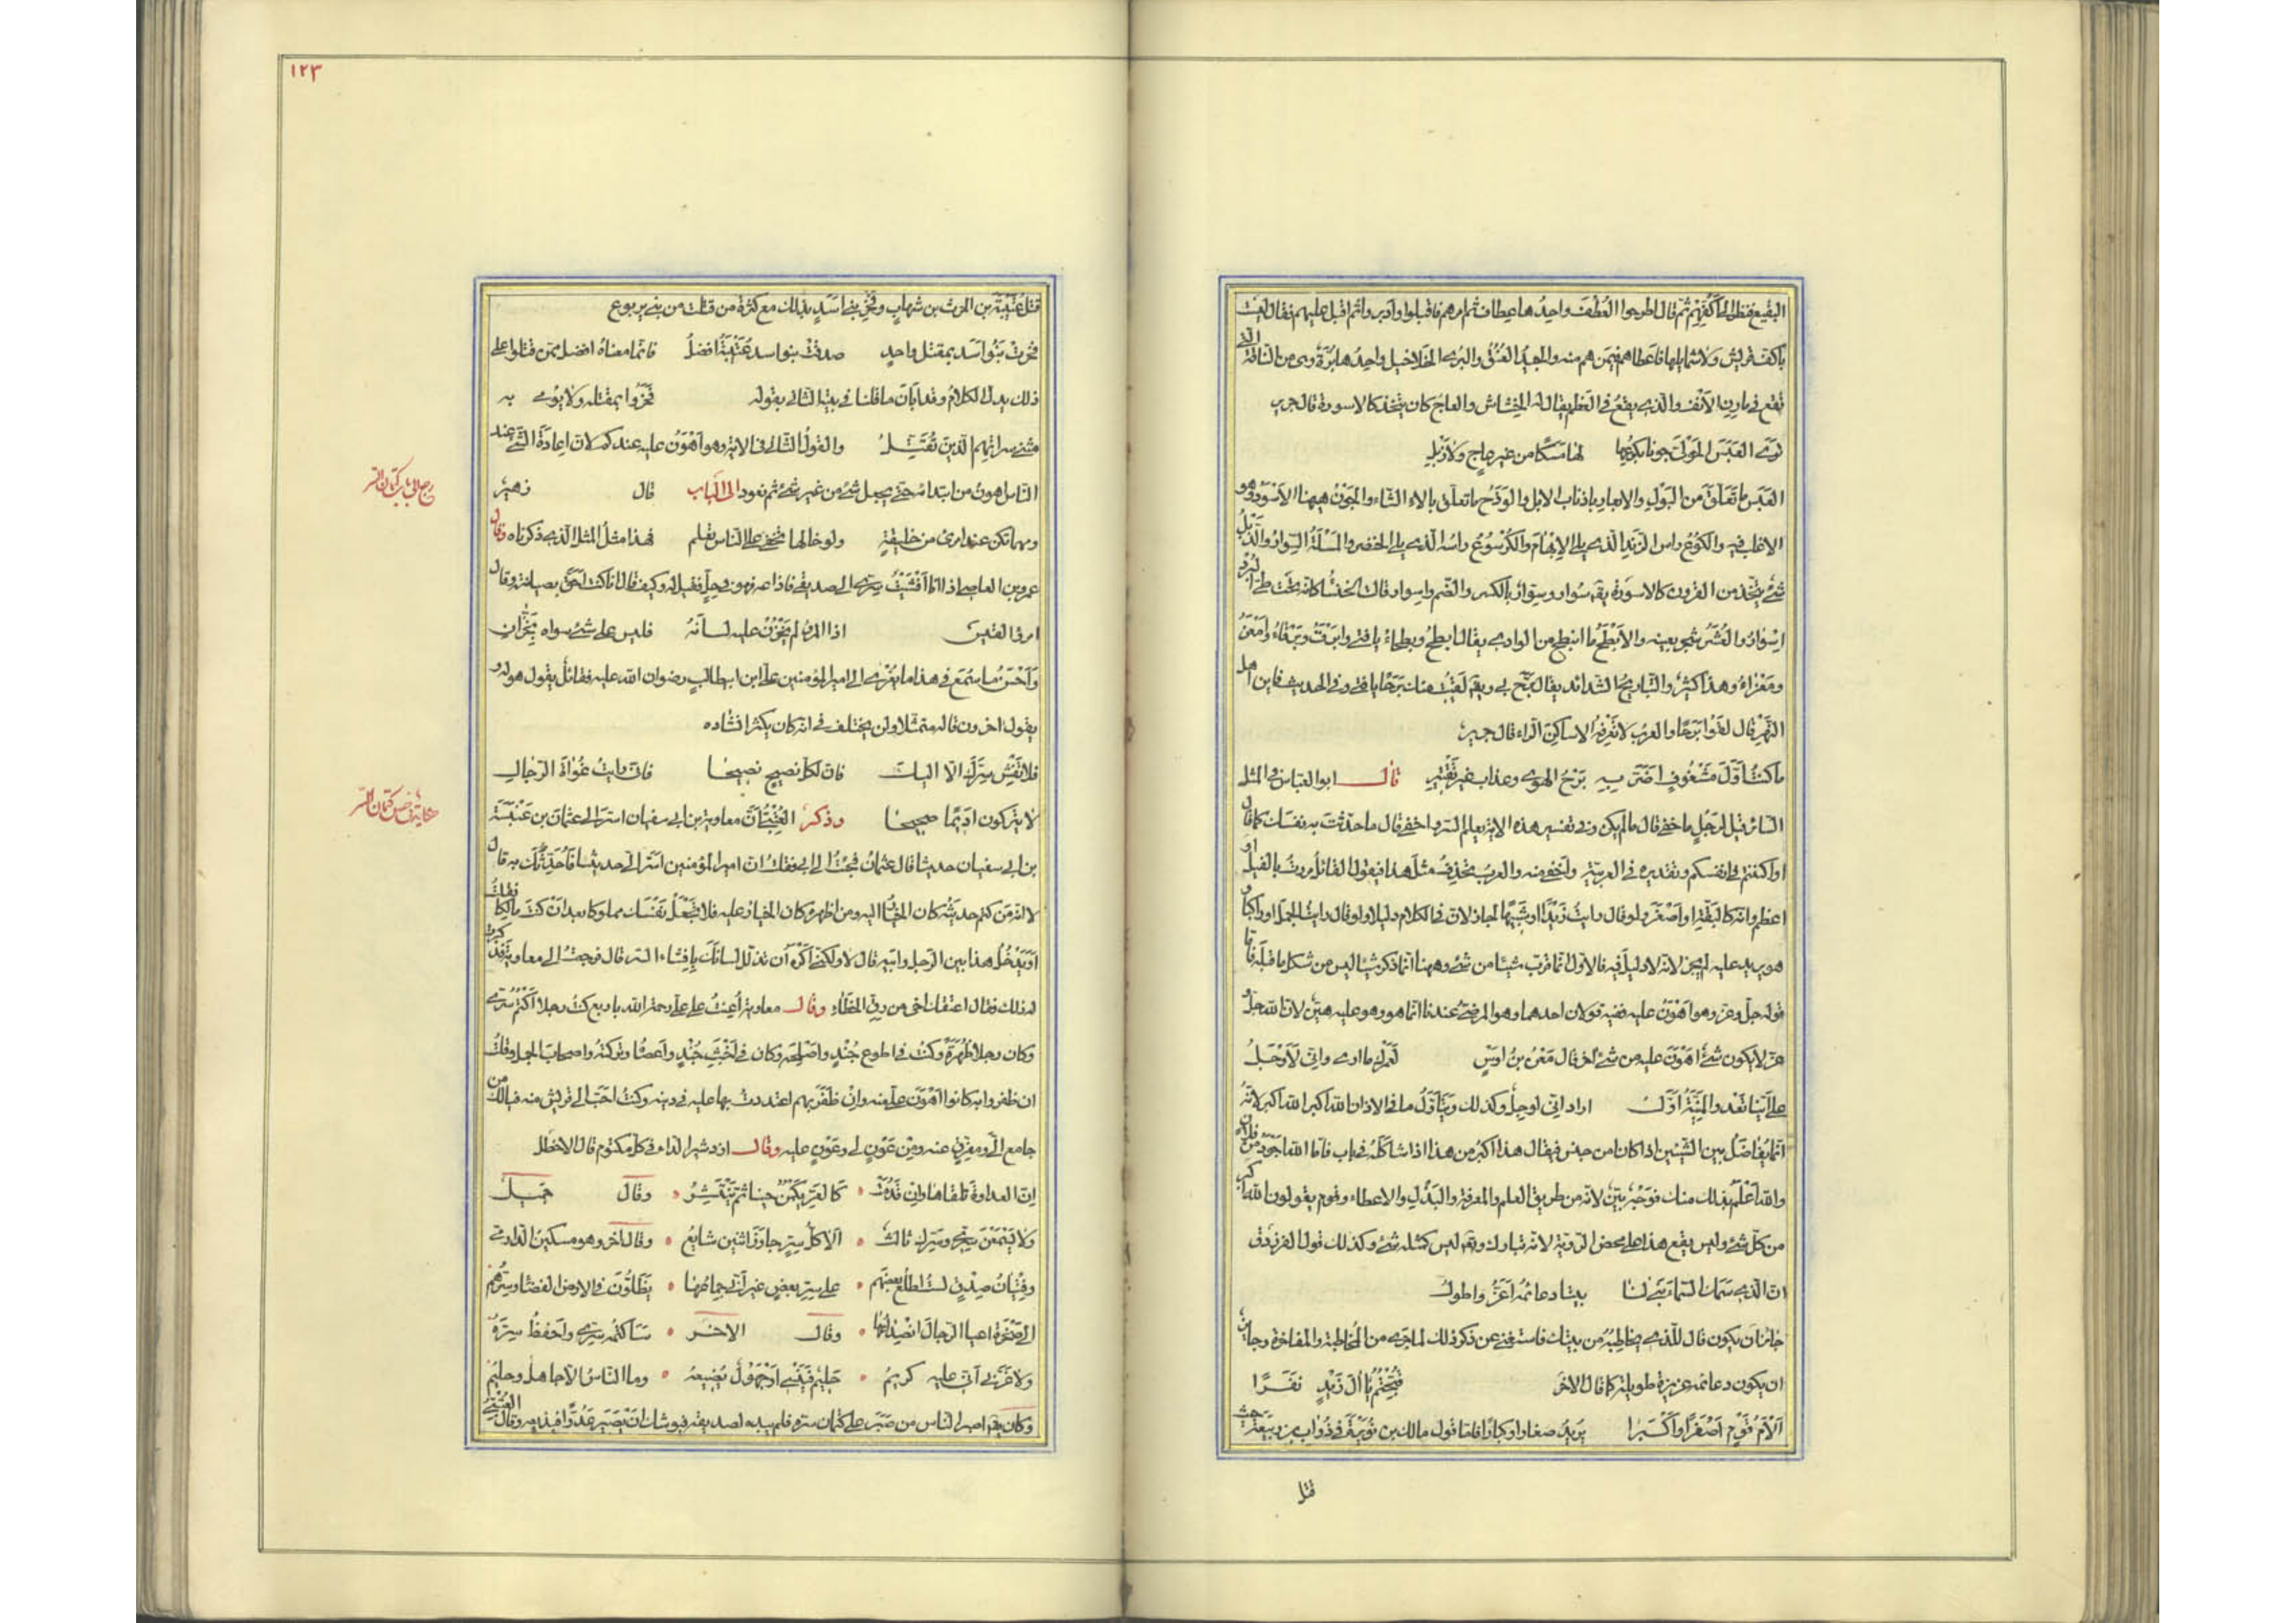 البقيع فنظر الى اكفهم ثم قال اطرحوا العُطُفَ واحدُها عِطاف ثم امرهم فاقبلوا وادبروا ثم اقبل عليهم فقال ليست
باكف قريش ولا شمايلها فاعطاهم فيمن هم منه والجيدُ العُنُق والبُرى الخلاخيل واحدها بُرَةٌ وهى من الناقة التى
تقع فى مارِن الأنف والذى يقعُ فى العظم يقال له الخِشاش والعاج كان يتخذ كالاسورة قال جرير
تَرَى العَبَسَ الحَوْلىَّ جونا بكوعِها لها مَسَكًا من غير عاج ولا ذَبْلِ
العَبَس ما تَعَلّقَ من البَوْلِ والابعار باذناب الابل والوَذَحُ ما تعلّق بالاء الشاء والجَوْنُ هيهنا الأسْوَدُ وهو
الاغلب فيه والكُوعُ راس الزندِ الذى يلى الابْهامَ والكُرْسُوعُ راسُه الذى يلى الخنصر والمَسَكَةُ السِوارُ والذَبْلُ
شئ يتّخذ من القرون كالاسورة يقـ سُوار وسِوار بالكسر والضم واسوار قالت الخنسا كانه تحت طى البُرْد
اِسْوارُ والعُشَرُ شجر بعينه والأبْطَحُ ما انبطح من الوادى يقال ابطح وبطحاءُ يا فتى وابرَقُ وبَرْقاءُ وأمْعَزُ
ومَعْزاءُ وهذا كثير والتباريحُ الشدائد يقال بَرَّحَ بى ويقـ لَقيتُ منك بَرْحًا يا فتى وفى الحديث فاين اهل
النَهْرِ قال لقُوا بَرَحًا والعربُ لا تَعْرِفه الا ساكِنَ الراء قال جرير
ما كنتُ أوّلَ مَشغوفٍ اضَرَّ بِهِ بَرْحُ الهوى وعذابٌ غيرُ تَفْتِيرِ قال ابو العباس فى المثل
السائر قيل لرجلٍ ما خَفِىَ قال ما لم يكن وفى تفسير هذه الاية يعلم السر واخفى قال ما حدّثت به نفسَك كما قال
او اكننتم فى انفسكم وتقديره فى العربيّة واَخْفى منه والعربُ تحذِفُ مثلَ هذا فيقول القائلُ مررتُ بالفيل او
اعظم وانه كالبقَّةِ او اصْغَرَ ولو قال رايتُ زيدًا او شبيهًا لجاز لان فى الكلام دليلا ولو قال رايتُ الجمل او راكبًا و
هو يريد عليه لم يجز لانه لا دليل فيه فالاول انما قرب شيئا من شئ وههنا انما ذكر شيئا ليس من شكل ما قبله فاما
قوله جل وعز وهو اَهْوَنُ عليه ففيه قولان احدهما وهو المرضىُّ عندنا انما هو وهو عليه هيّن لان الله جل و
عز لا يكون شئٌ اهْوَنَ عليه من شئ اخر قال مَعْنُ بنُ اوسٍ لَعَمْرُكَ ما ادرى وانى لَأَوْجَلُ
على اينا تَعْدُو المنيَّةُ اوّلُ اراد انى لوجِلٌ وكذلك ويُتَأَوَّلُ ما فى الاذان الله اكبر الله اكبر لانهُ
انما يُفاضَلُ بين الشيئين اذا كانا من جنس فيقال هذا اكبر من هذا اذا شاكَلَهُ فى باب فاما الله اجودُ من فلان
والله اَعْلَمُ بذلك منك فوَجْهٌ بَيِّنٌ لانه من طريق العلم والمعرفة والبَذْلِ والاعطاء وقوم يقولون الله اكبر
من كل شئ وليس يقع هذا على محض الرؤية لانه تبارك وتعـ ليس كمثله شئ وكذلك قول الفرزدق
ان الذى سَمَكَ السماءَ بَنَى لنا بيتًا دعائمُه اَعَزُّ واطول
جائز ان يكون قال للذى يخاطِبُهُ من بيتك فاستغنى عن ذكر ذلك لما جرى من المخاطبة والمفاخرة وجايز
ان يكون دعائمه عزيزة طويلة كما قال الاخر قُبِّحْتُمْ يا الَ زَيْدٍ نفَرًا
اَلْأَمَ قَوْمٍ اصْغَرًا واَكْبَرا يريد صغارا وكبارًا فاما قول مالك بن نُوَيْرَةَ فى ذُؤاب بن ربيعة حيث
قتل
١٢٣
قتل عُتَيْبَةَ بن الحرث بن شهابٍ وفَخْرِ بنى اسَدٍ بذلك مع كثرة من قتلت من بنى يربوع
فخرتْ بَنُو اَسَدٍ بمقتل واحدٍ صدقتْ بنو اسدٍ عُتَيْبَةُ افضلُ فانما معناهُ افضل ممن قتلوا على
ذلك يدل الكلامُ وقد ابَانَ ما قلنا فى بيته الثانى بقوله فَخَرُوا بمقتله ولا يُوفى به
مثنى سراتِهِم الذين نُقَتِّلُ والقولُ الثانى فى الاية وهو اَهْوَنُ عليه عندكم لان اعادةَ الشئ عند
الناس اهونُ من ابتدائه حتى يجعل شئ من غير شئ ثم نعود الى الباب قال زهير
رجع الى باب كتمان السر
ومهما تكن عند امرئ من خليقةٍ ولو خالها تخفى على الناس تعلم فهذا مثل المثل الذى ذكرناه وقال
عمرو بن العاصى اذا انا اَفْشَيْتُ سِرّى الى صديقى فاذاعه فهو فى حِلٍّ فقيل له وكيف قال انا كنت احقَّ بصيانته وقال
امرؤ القيس اذا المرءُ لم يَخْزُنْ عليه لسانَهُ فليس على شئ سواه بِخَزَّانِ
واَحْسَنُ ما سُمِعَ فى هذا ما يُعْزَى الى امير المؤمنين على ابن ابيطالبٍ رضوان الله عليه فقائلٌ يقول هو له و
يقول اخرون قاله متمثلا ولن يختلف فى انه كان يكثر انشاده
فلا تُفْشِ سِرَّكَ الّا اليكَ فان لكلّ نصيحٍ نصيحًا فانى رايتُ غُواةَ الرجالِ
لا يتركون اديمًا صحيحًا وذكر العُتْبِىُّ اَنَّ معاوية بن ابى سفيان اسَرّ الى عثمان بن عَنْبَسَةَ
حكاية فى حسن كتمان السر
بن ابى سفيان حديثا قال عثمانُ فجئتُ الى ابى فقلتُ ان امير المؤمنين اسَرَّ الىّ حديثا فأُحدِّثُك به قال
لا انه من كتم حديثه كان الخيارُ اليه ومن اظهره كان الخيار عليه فلا تَجْعَلْ نفسَك مملوكا بعد ان كنت مالكًا فقلتُ
أوَيَدْخُلُ هذا بين الرجل وابيه قال لا ولكنى أكْرَهُ أن تذلّل لسانَك بإفشاء السر قال فرجعتُ الى معاوية فذكرت
له ذلك فقال اعتقك اخى من رِقّ الخَطَاءِ وقال معاوية أُعِنْتُ على علىّ رحمة الله باربع كنت رجلا اَكْتُمُ سِرّى
وكان رجلا ظُهَرَةً وكنتُ فى اطوع جُنْدٍ واَصْلَحِهِ وكان فى اَخْبَثِ جُنْدٍ واَعصاه وتركتُه واصحابَ الجمل وقلتُ
ان ظفروا به كانوا اَهْوَنَ علىّ منه وإنْ ظَفَرَ بهم اعتددت بها عليه فى دينه وكنتُ احَبَّ الى قريش منه فيالك من
جامع الىّ ومفرّقٍ عنه ومن عَوْنٍ لى وعَوْنٍ عليه وقال ازدشير الداء فى كل مكتوم قال الاخطل
انّ العداوةَ تلقاها وان قَدُمَتْ كالعَرِّ يكمُنُ حينا ثم يَنْتَشِرُ وقال جميل
ولا يَسْمَعَنْ سِرّى وسِرَّك ثالثٌ الا كلُّ سِرٍّ جاوَزَ اثنين شايعُ وقال اخر وهو مسكين الدارمى
وفِتْيانُ صِدْقٍ لستُ اُطلِعُ بعضَهم على سِرّ بعضٍ غير أنّى جِماعُها يَظَلُّونَ فى الارض الفضا وسِرُّهُم
الى صَخْرَةٍ اعيا الرجالَ انصِداعُها وقال الاخر سَاَكتُمُه سِرّى واَحفَظُ سِرَّهُ
ولا غَرَّنى أنى عليه كريمُ حليمٌ فَيَنْسى أو جَهُولٌ يُضيعُه وما الناسُ الا جاهلٌ وحليمُ
وكان يقـ اصبر الناس من صَبَر على كتمان سره فلم يبده لصديقه فيوشك ان يَصيرَ عَدُوًّا فيذيعه وقال العُتْبى